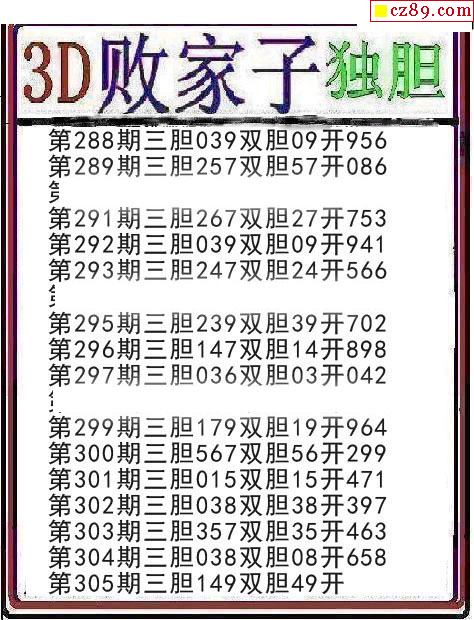 cz89.com
3D败家子独胆
第288期三胆039双胆09开956
第289期三胆257双胆57开086
第
第291期三胆267双胆27开753
第292期三胆039双胆09开941
第293期三胆247双胆24开566
第295期三胆239双胆39开702
第296期三胆147双胆14开898
第297期三胆036双胆03开042
第299期三胆179双胆19开964
第300期三胆567双胆56开299
第301期三胆015双胆15开471
第302期三胆038双胆38开397
第303期三胆357双胆35开463
第304期三胆038双胆08开658
第305期三胆149双胆49开